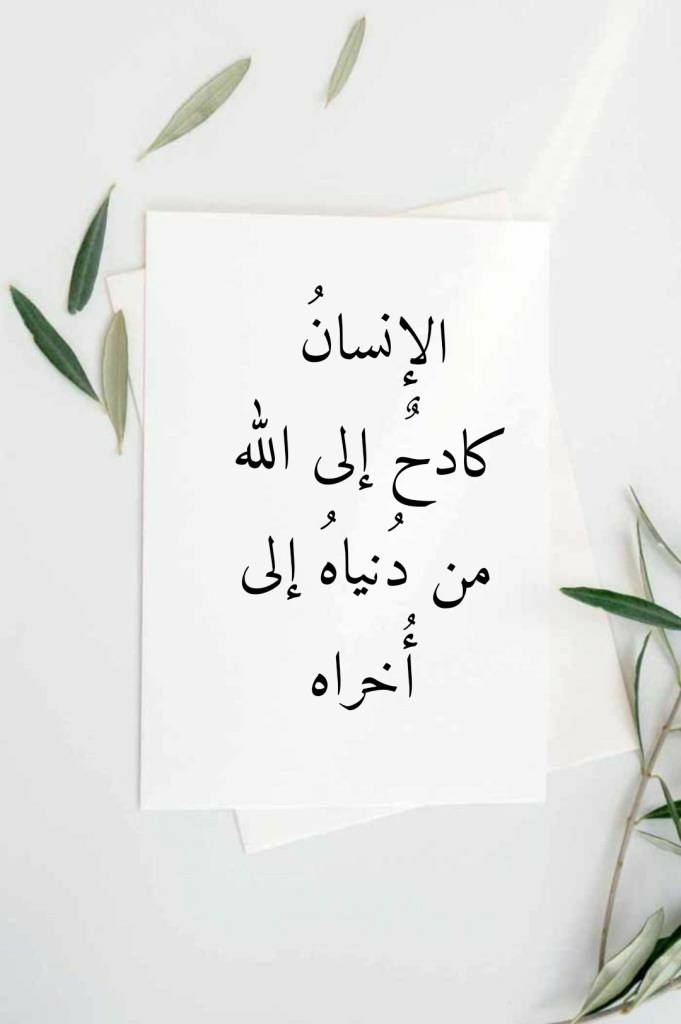 الإنسانُ
كادحٌ إلى الله
من دُنياهُ إلى
أُخراه